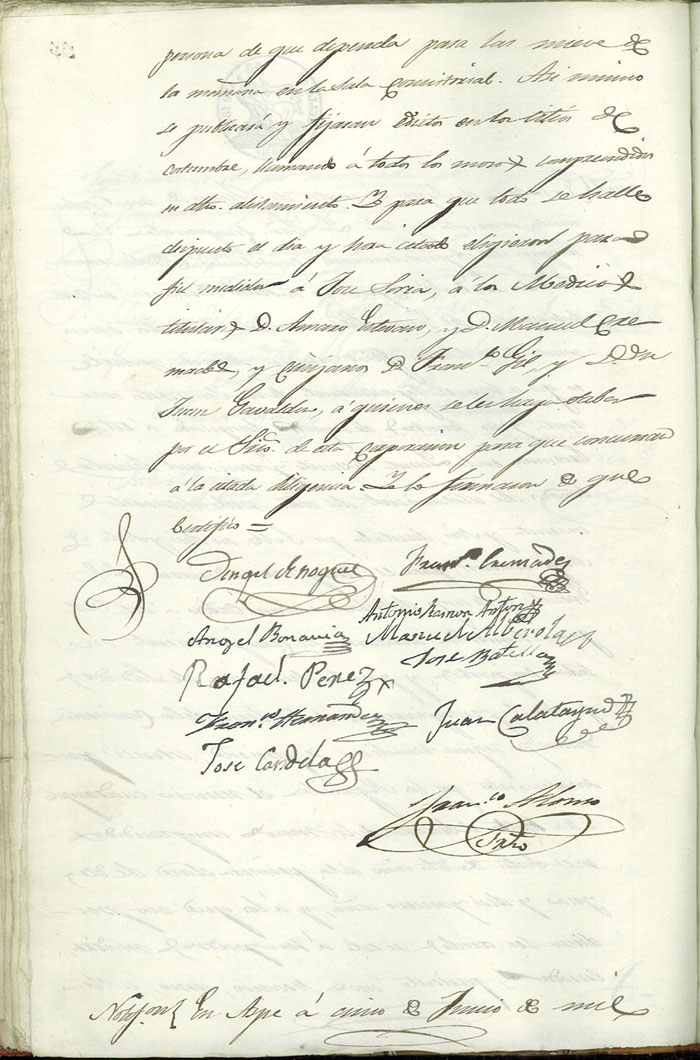 persona de que dependa para las nueve de
la mañana en la Sala Consistorial. Asi mismo
se publicará y fijaran Edictos en los sitios de
costumbre, llamando á todos los mozos comprendidos
en dho. alistamiento. Y para que todo se halle
dispuesto el dia y hora citado eligieron para
fiel medidor á Jose Soria, á los Medicos
titulares D. Amaro Estevan, y D. Manuel Cre
mades, y Cirujanos D. Fran.co Gil, y D. Dn
Juan Gavalda, á quienes se les haga saber
por el Srio. de esta Corporacion para que concurran
á la citada diligencia Y lo firmaron de que
Certifico =
Angel Fran.co Cremades
Antonio Ramon Anton
Angel Bonavia Manuel Alberola
Jose Batella
Rafael Perez
Fran.co Hernandez Juan Calatayud
Jose Candela
Fran.co Alonso
Srio
En Aspe á cinco de Junio de mil